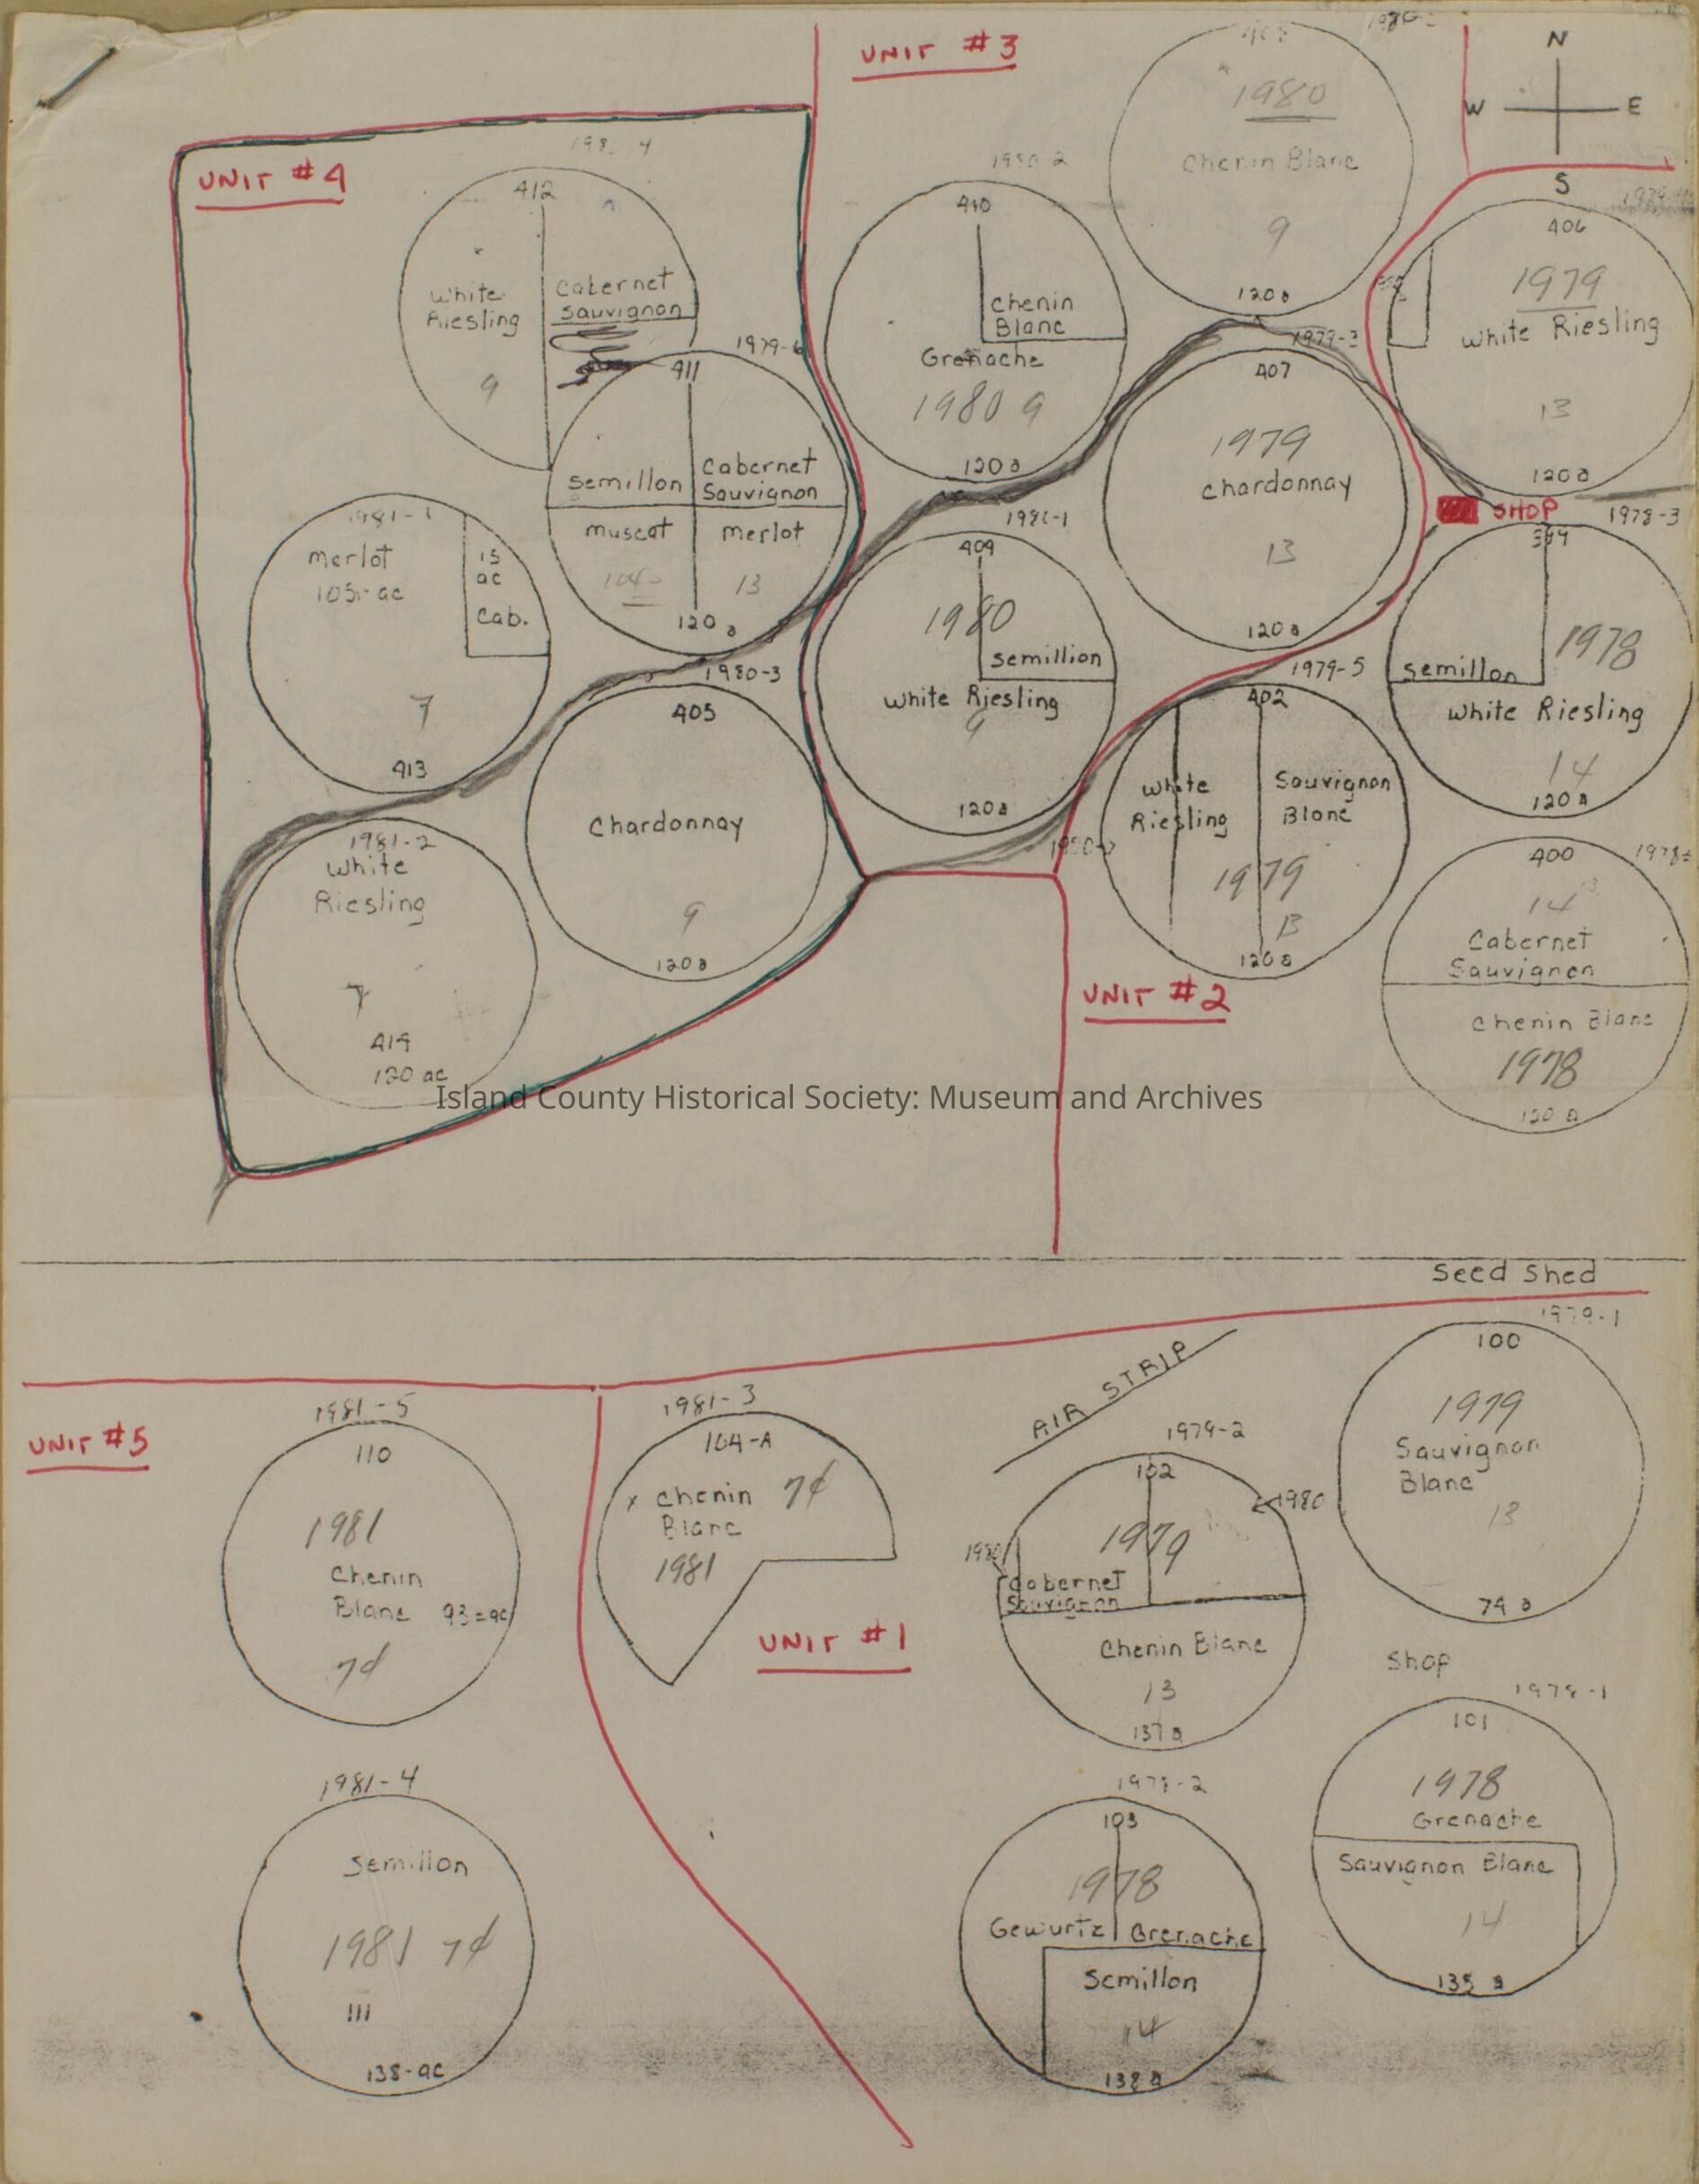 UNIT #3
N
W E
S
1980
Chenin Blanc
9
120a
UNIT #4
412
White
Riesling
9
Cabernet
Sauvignon
1979-6
411
Semillon
Cabernet
Sauvignon
muscat
merlot
13
120a
1980-2
410
Chenin
Blanc
Grenache
1980 9
120a
1979-3
407
1979
Chardonnay
13
120a
406
1979
White Riesling
13
120a
SHOP
1978-3
399
1978
Semillon
White Riesling
14
120a
1981-1
merlot
105-ac
15
ac
Cab.
7
413
1980-1
409
1980
Semillion
White Riesling
9
120a
1980-3
405
Chardonnay
9
120a
1979-5
402
White
Riesling
Sauvignon
Blanc
1979
13
120a
1981-2
White
Riesling
7
414
120 ac
400
14
Cabernet
Sauvignon
Chenin Blanc
1978
120 a
UNIT #2
Island County Historical Society: Museum and Archives
Seed Shed
AIR STRIP
1979-1
100
1979
Sauvignon
Blanc
13
74 a
UNIT #5
1981-5
110
1981
Chenin
Blanc 93=ac
7¢
1981-3
104-A
x Chenin 7¢
Blanc
1981
UNIT #1
1979-2
102
1980
1979
1980
Cabernet
Sauvignon
Chenin Blanc
13
137a
Shop
1978-1
101
1978
Grenache
Sauvignon Blanc
14
135 a
1981-4
Semillon
1981 7¢
111
138-ac
1978-2
103
1978
Gewurtz
Grenache
Semillon
14
138a